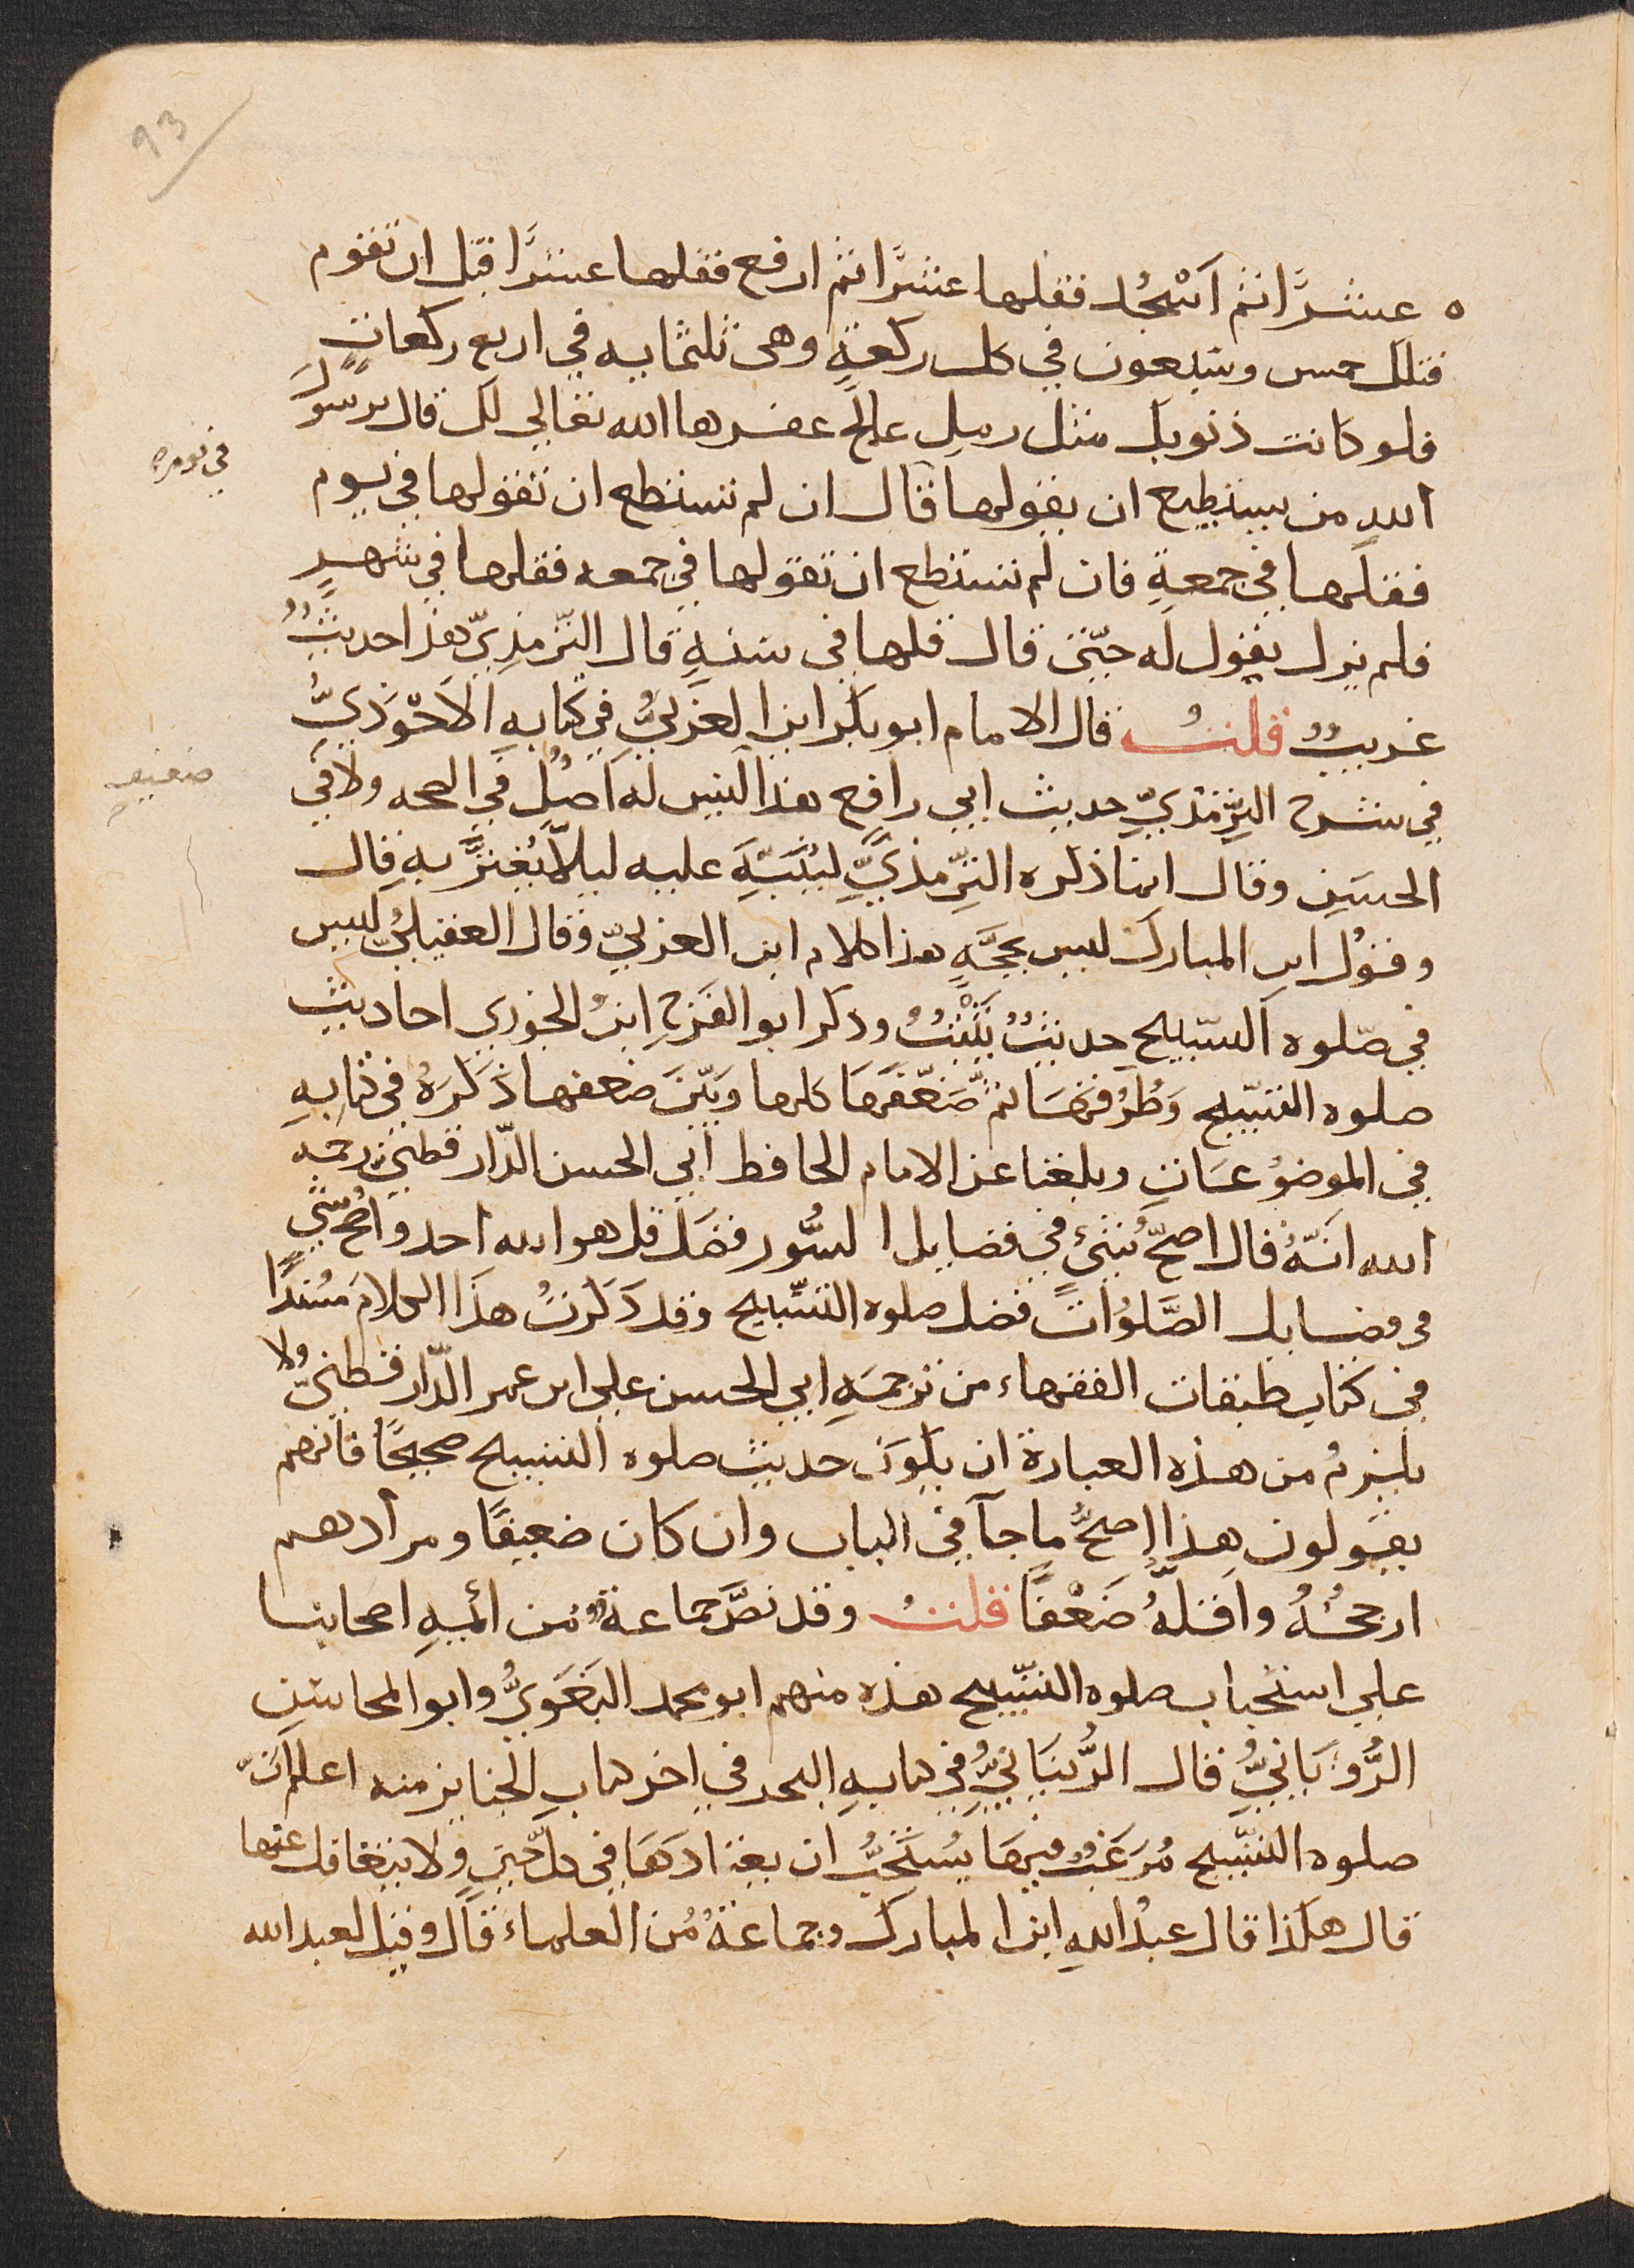 93
عشرًا ثم اسْجُد فقلها عشرًا ثم ارفع فقلها عشرًا قبل ان تقوم
فتلك خمس وسبعون في كل ركعةٍ وهى ثلثمايه في اربع ركعاتٍ
فلو كانت ذنوبك مثل رملِ عالج غفرها الله تعالى لك قال يرسول
اللهِ من يستطيع ان يقولها قال ان لم تستطع ان تقولها في يوم
في يومه
فقلها في جمعةٍ فان لم تستطع ان تقولها في جمعه فقلها في شهرٍ
فلم يزل يقول له حتّى قال قلها في سنةٍ قال الترمذِيّ هذا حديثٌ
غريبٌ قلتُ قال الامام ابو بكر ابن العَرَبيُّ في كتابهِ الاَحْوَذيّ
في شرح الترمذيِّ حديث ابي رافع هذا ليس له اَصْلٌ في الصحه ولا في
ضعيف
الحسَنِ وقال انما ذكره الترمذيُّ لينبّهَ عليه ليلّا يُغترَّ بهِ قال
وقوْل ابن المبارك ليس بحجَّةٍ هذا كلام ابن العربيّ وقال العقيليُّ ليس
في صَلوه التسبيح حديثٌ يَثْبُتُ وذكر ابو الفَرَجِ ابنُ الجوزي احاديث
صلوه التسبيح وَطُرُقهَا ثمّ ضَعّفَهَا كلها وَبَيّنَ ضعفها ذَكَرَهُ في كتابهِ
في الموضوُعَاتِ وبلغنا عن الامام الحافظ ابي الحسن الدّارقطنيّ رحمه
الله انّهُ قال اصحّ شيْء في فضايل السُّور فضَل قل هو الله احد واصُحّ شي
في فضايل الصَّلواتِ فضل صلوه التسبيح وقد ذَكَرْتُ هذَا الكلامَ مُسْندًا
في كتاب طبقات الفقهاء من ترجمَهِ ابي الحسن علي ابن عمر الدّارقطنيّ ولا
يلزمُ من هذه العبارة ان يكوَن حديث صلوه التسبيح صحيحًا فانهم
يقولون هذا اصحُّ ما جآ في الباب وان كان ضعيفًا ومرادهم
ارجحُهُ واقلّهُ ضَعْفًا قلتُ وقد نصَّ جماعةٌ من ائمهِ اصحابنا
علي استحباب صلوه التسْبيح هذه منهم ابو محمد البَغَويُّ وابو المحاسن
الرُّويَانيُّ قال الرُّويَانيُّ في كتابهِ البحر في اخر كتابِ الجنايز منه اعلم انّ
صلوه التسْبيح مُرَغبٌ فيهَا يُستَحَبُّ ان يعتادَهَا في كلّ حينٍ ولا يتغافل عنها
قال هكذا قال عبدُ اللهِ ابن المبارك وجماعةٌ من العلماء قال وقيل لعبد الله